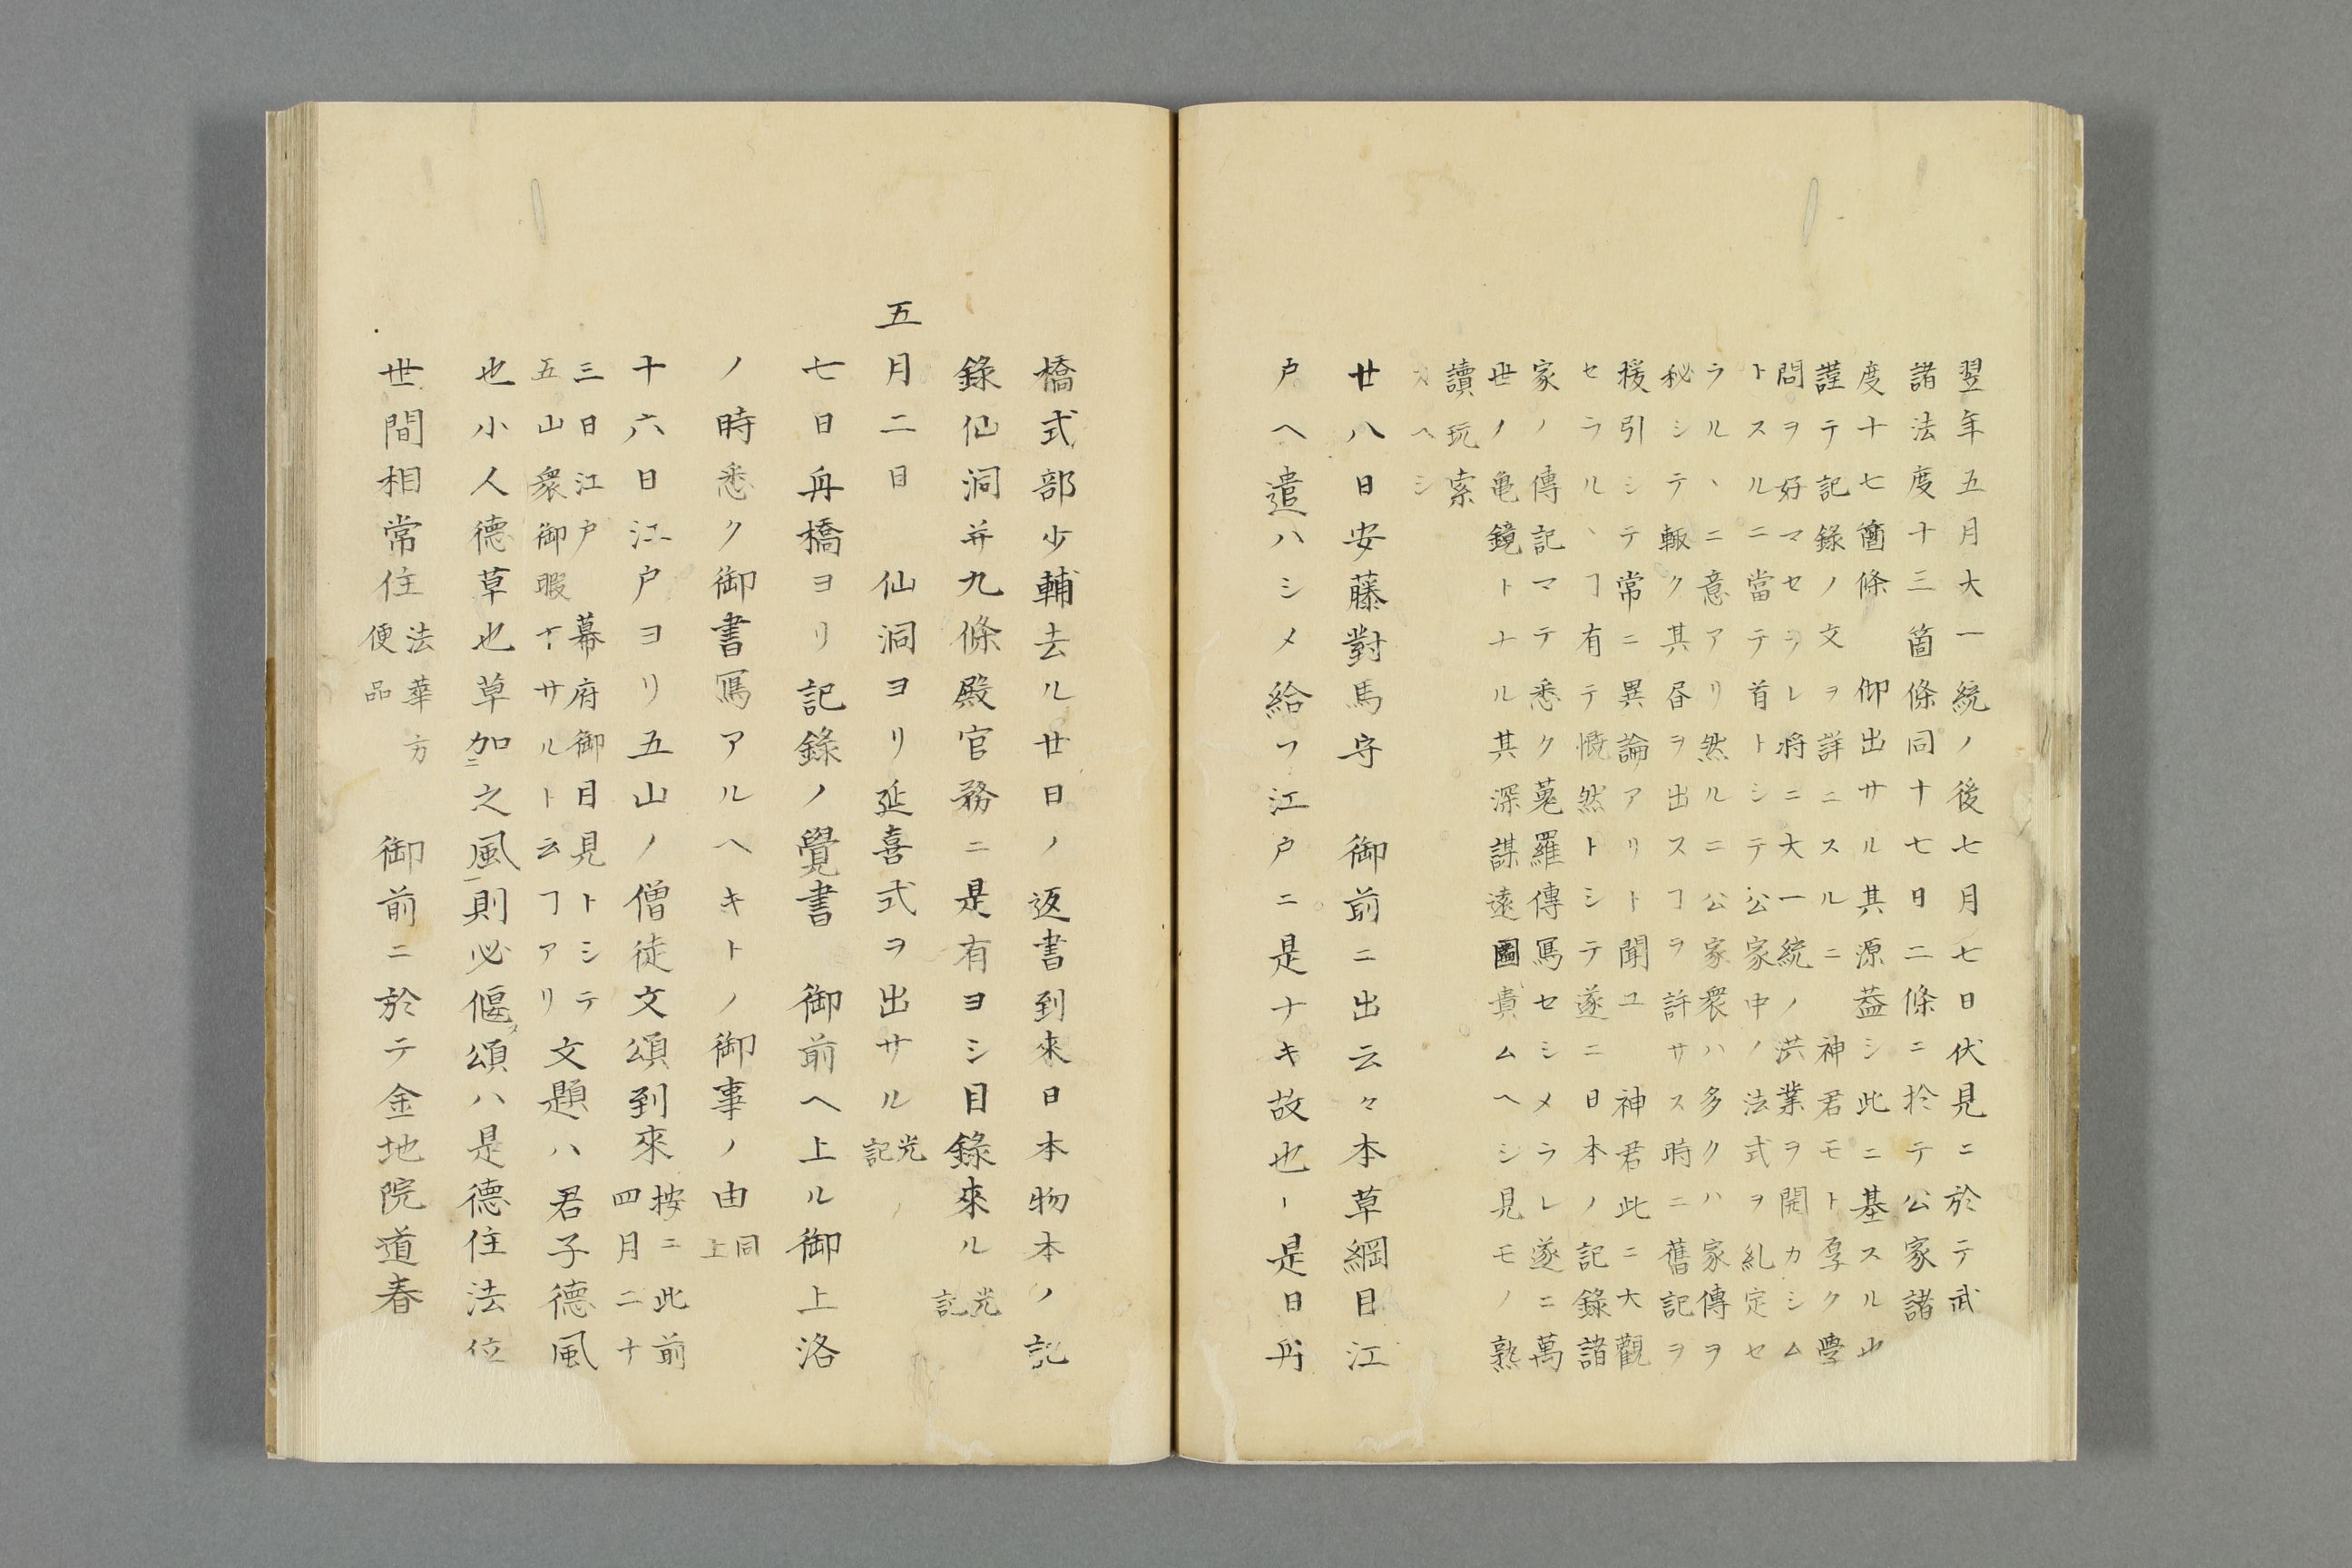 翌年五月大一統ノ後七月七日伏見ニ於テ武
諸法度十三箇條同十七日二條ニ於テ公家諸
度十七箇條　仰出サル其源蓋シ此ニ基スルカ
謹テ記錄ノ文ヲ詳ニスルニ　神君モト厚ク學
問ヲ好マセラレ将ニ大一統ノ洪業ヲ開カシム
トスルニ當テ首トシテ公家中ノ法式ヲ糺定セ
ラルヽニ意アリ然ルニ公家衆ハ多クハ家傳ヲ
秘シテ輙ク其昏ヲ出スヿヲ許サス時ニ舊記ヲ
援引シテ常ニ異論アリト聞ユ　神君此ニ大觀
セラルヽヿ有テ慨然トシテ遂ニ日本ノ記錄諸
家ノ傳記マテ悉ク蒐羅傳寫セシメラレ遂ニ萬
世ノ亀鏡トナル其深謀遠圖貴ムヘシ見モノ熟
讀玩索
スヘシ
廿八日安藤對馬守　御前ニ出云々本草綱目江
戸ヘ遣ハシメ給フ江戸ニ是ナキ故也ー是日丹
橋式部少輔去ル廿日ノ返書到來日本物本ノ記
錄仙洞并九條殿官務ニ是有ヨシ目錄來ル 光記
五月二日　仙洞ヨリ延喜式ヲ出サル 光記
七日舟橋ヨリ記錄ノ覺書　御前ヘ上ル御上洛
ノ時悉ク御書寫アルヘキトノ御事ノ由 同上
十六日江戸ヨリ五山ノ僧徒文頌到來 按ニ此前四月二十
三日江戸　幕府御目見トシテ
五山衆御暇ナサルト云ヿアリ 文題ハ君子德風
也小人德草也草加ニ之風一則必偃メ頌ハ是德住法位
世間相常住 法華方便品　御前ニ於テ金地院道春